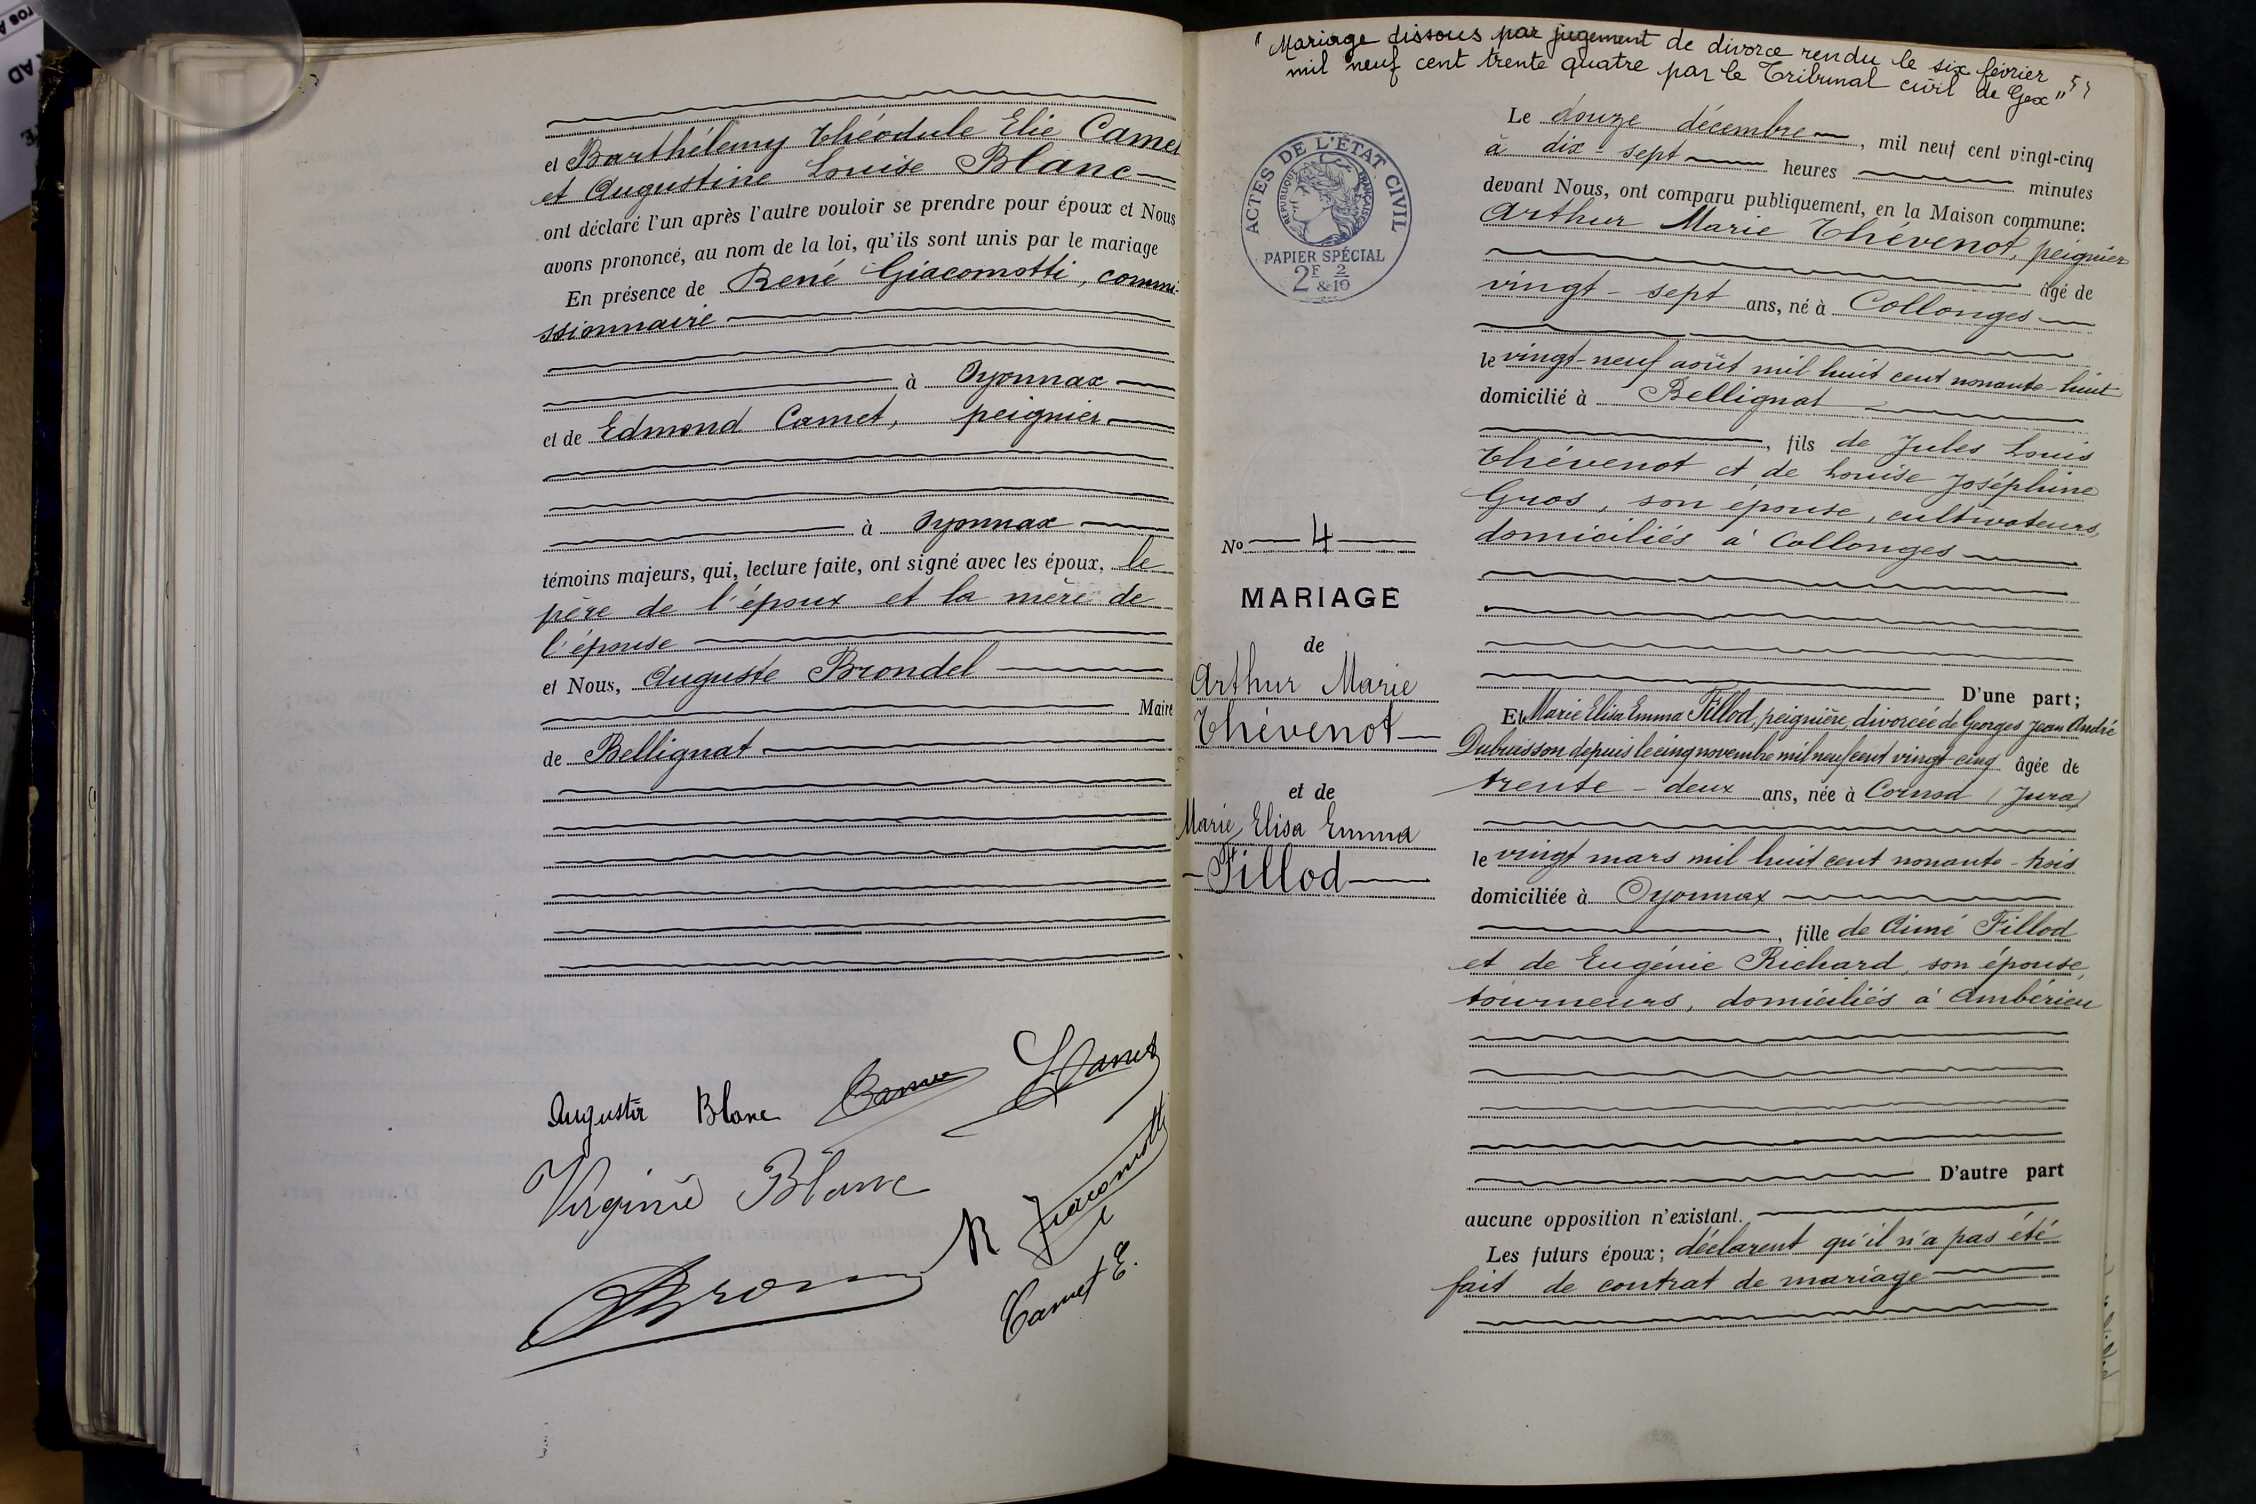 et Barthélemy Théodule Elie Camet
et Augustine Louise Blanc
ont déclaré l'un après l'autre vouloir se prendre pour époux et Nous
avons prononcé, au nom de la loi, qu'ils sont unis par le mariage
En présence de René Giacomotti, commi-
ssionnaire
à Oyonnax
et de Edmond Camet, peignier
à Oyonnax
témoins majeurs, qui, lecture faite, ont signé avec les époux, le
père de l'époux et la mère de
l'épouse
et Nous, Auguste Brondel
Maire
de Bellignat
Augustine Blanc Camet
Virginie Blanc
R Giacomotti
Camet E.
"Mariage dissous par jugement de divorce rendu le six février
mil neuf cent trente quatre par le Tribunal civil de Gex"
ACTES DE L'ÉTAT CIVIL
RÉPUBLIQUE FRANÇAISE
PAPIER SPÉCIAL
2F 2
& 10
No 4
MARIAGE
de
Arthur Marie
Thévenot
et de
Marie Elisa Emma
Fillod
Le douze décembre, mil neuf cent vingt-cinq
à dix-sept heures minutes
devant Nous, ont comparu publiquement, en la Maison commune:
Arthur Marie Thévenot, peignier
âgé de
vingt-sept ans, né à Collonges
le vingt-neuf août mil huit cent nonante-huit
domicilié à Bellignat
, fils de Jules Louis
Thévenot et de Louise Joséphine
Gros, son épouse, cultivateurs,
domiciliés à Collonges
D'une part;
Et Marie Elisa Emma Fillod, peignière, divorcée de Georges Jean André
Dubuisson depuis le cinq novembre mil neuf cent vingt-cinq âgée de
trente-deux ans, née à Cornod (Jura)
le vingt mars mil huit cent nonante-trois
domiciliée à Oyonnax
, fille de Aimé Fillod
et de Eugénie Richard, son épouse,
tourneurs, domiciliés à Ambérieu
D'autre part
aucune opposition n'existant.
Les futurs époux; déclarent qu'il n'a pas été
fait de contrat de mariage